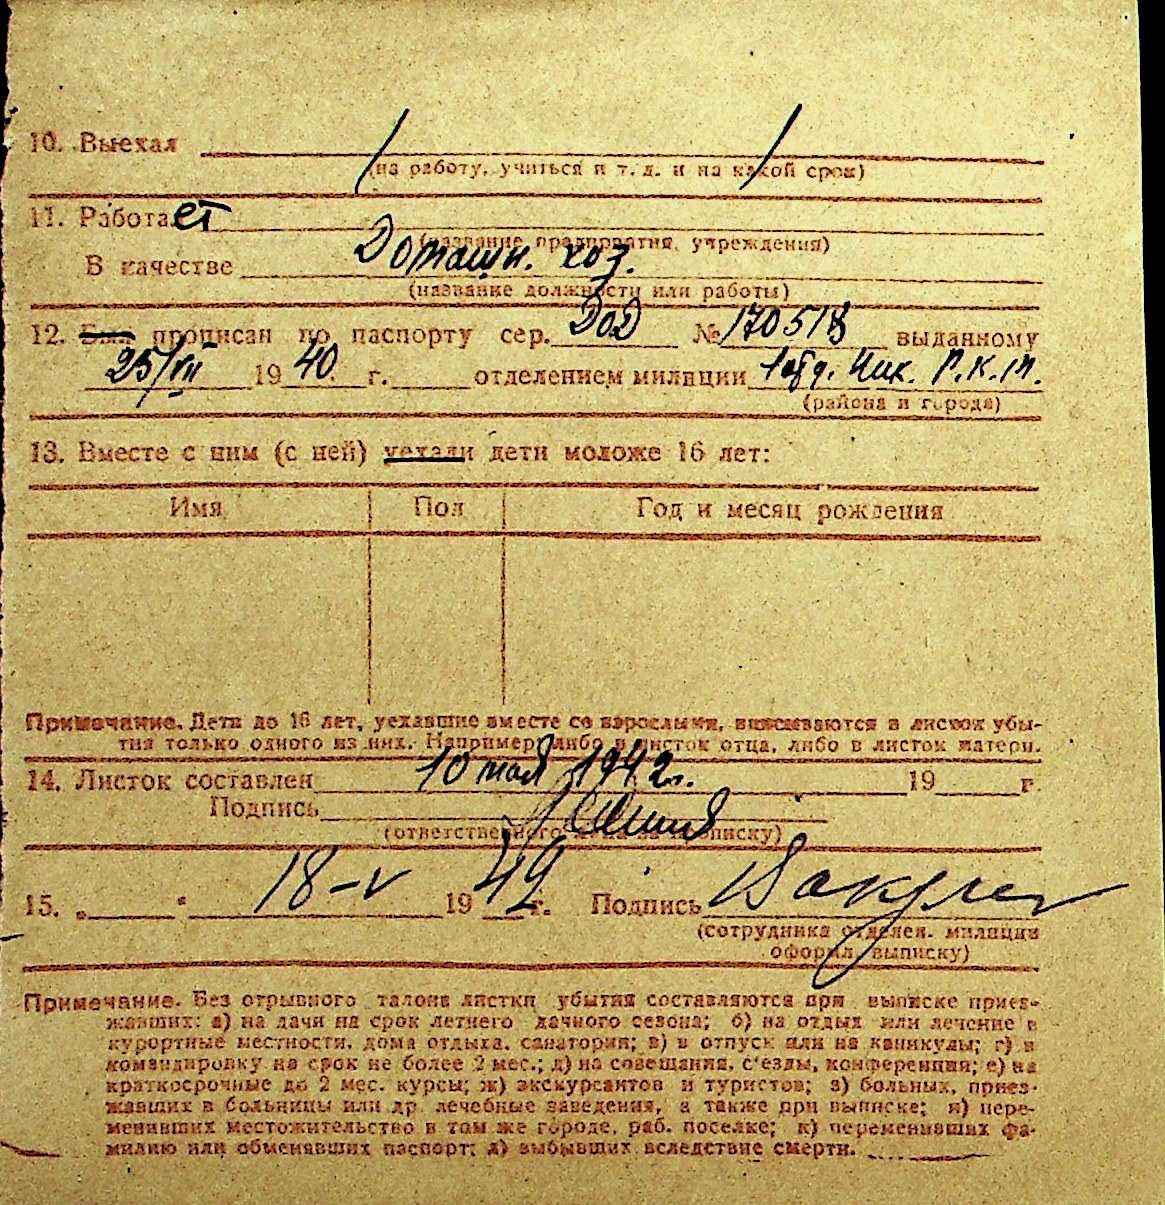 10. Выехал
(на работу, учиться и т. д. и на какой срок)
11. Работает
(название предприятия, учреждения)
В качестве Домашн. хоз.
(название должности или работы)
12. Был прописан по паспорту сер. ДоД № 170518 выданному
25/VII 1940 г. отделением милиции 1 отд. Ник. Р.К.М.
(района и города)
13. Вместе с ним (с ней) уехали дети моложе 16 лет:
Имя Пол Год и месяц рождения
Примечание. Дети до 16 лет, уехавшие вместе со взрослыми, вписываются в листок убы-
тия только одного из них. Например либо в листок отца, либо в листок матери.
14. Листок составлен 10 мая 1942 г. 19 г.
Подпись
(ответственного за выписку)
15. „ “ 18-V 1942 г. Подпись
(сотрудника отделен. милиции
оформ. выписку)
Примечание. Без отрывного талона листки убытия составляются при выписке приез-
жавших: а) на дачи на срок летнего дачного сезона; б) на отдых или лечение в
курортные местности, дома отдыха, санатории; в) в отпуск или на каникулы; г) в
командировку на срок не более 2 мес.; д) на совещания, с'езды, конференции; е) на
краткосрочные до 2 мес. курсы; ж) экскурсантов и туристов; з) больных, приез-
жавших в больницы или др. лечебные заведения, а также при выписке; и) пере-
менивших местожительство в том же городе, раб. поселке; к) переменивших фа-
милию или обменявших паспорт; л) выбывших вследствие смерти.